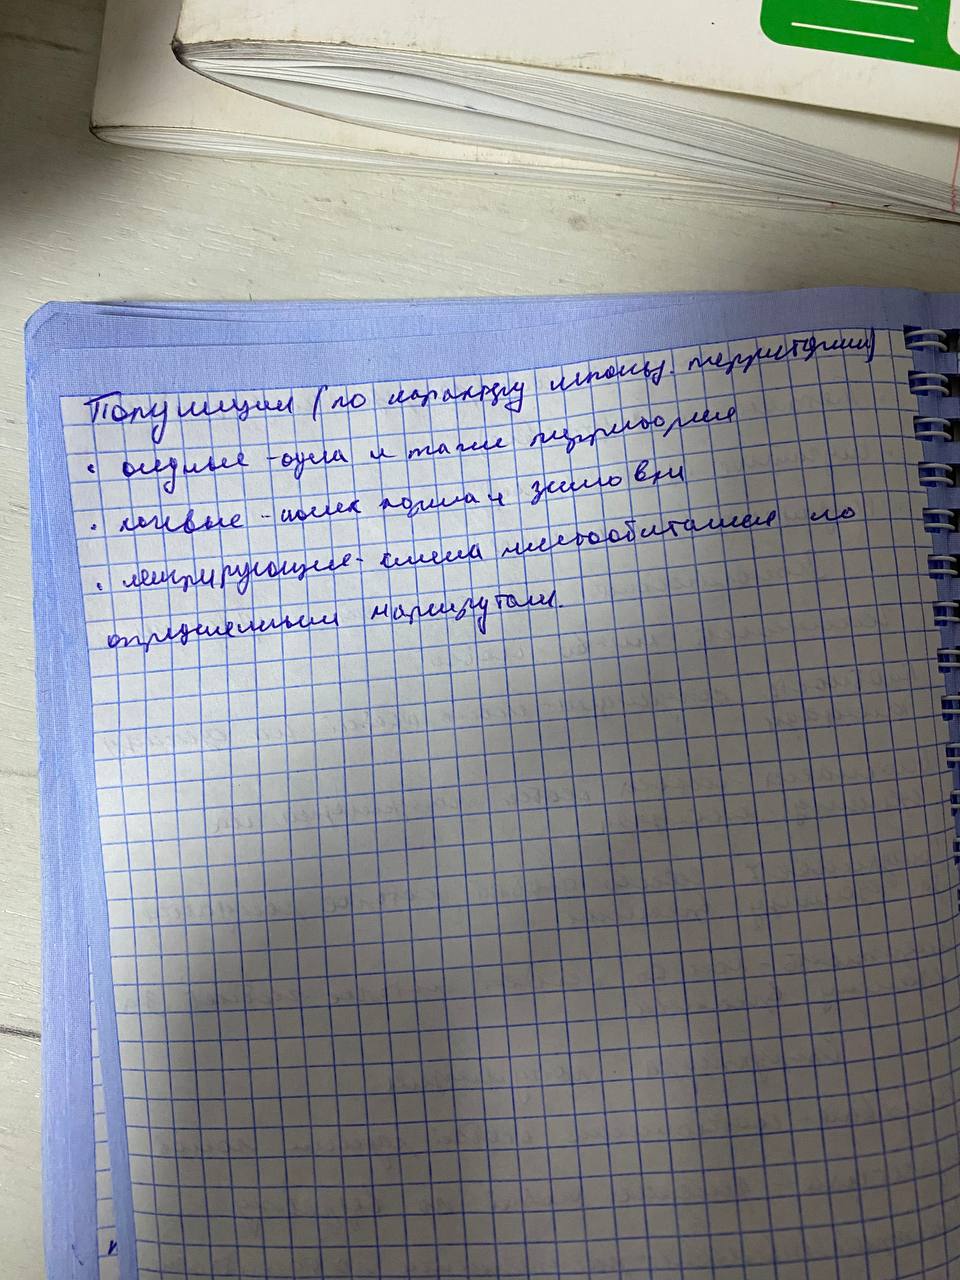 Популяции (по характеру использ. территории)
• оседлые - одна и та же территория
• кочевые - поиск корма и зимовки
• мигрирующие - смена местообитания по
определенным маршрутам.